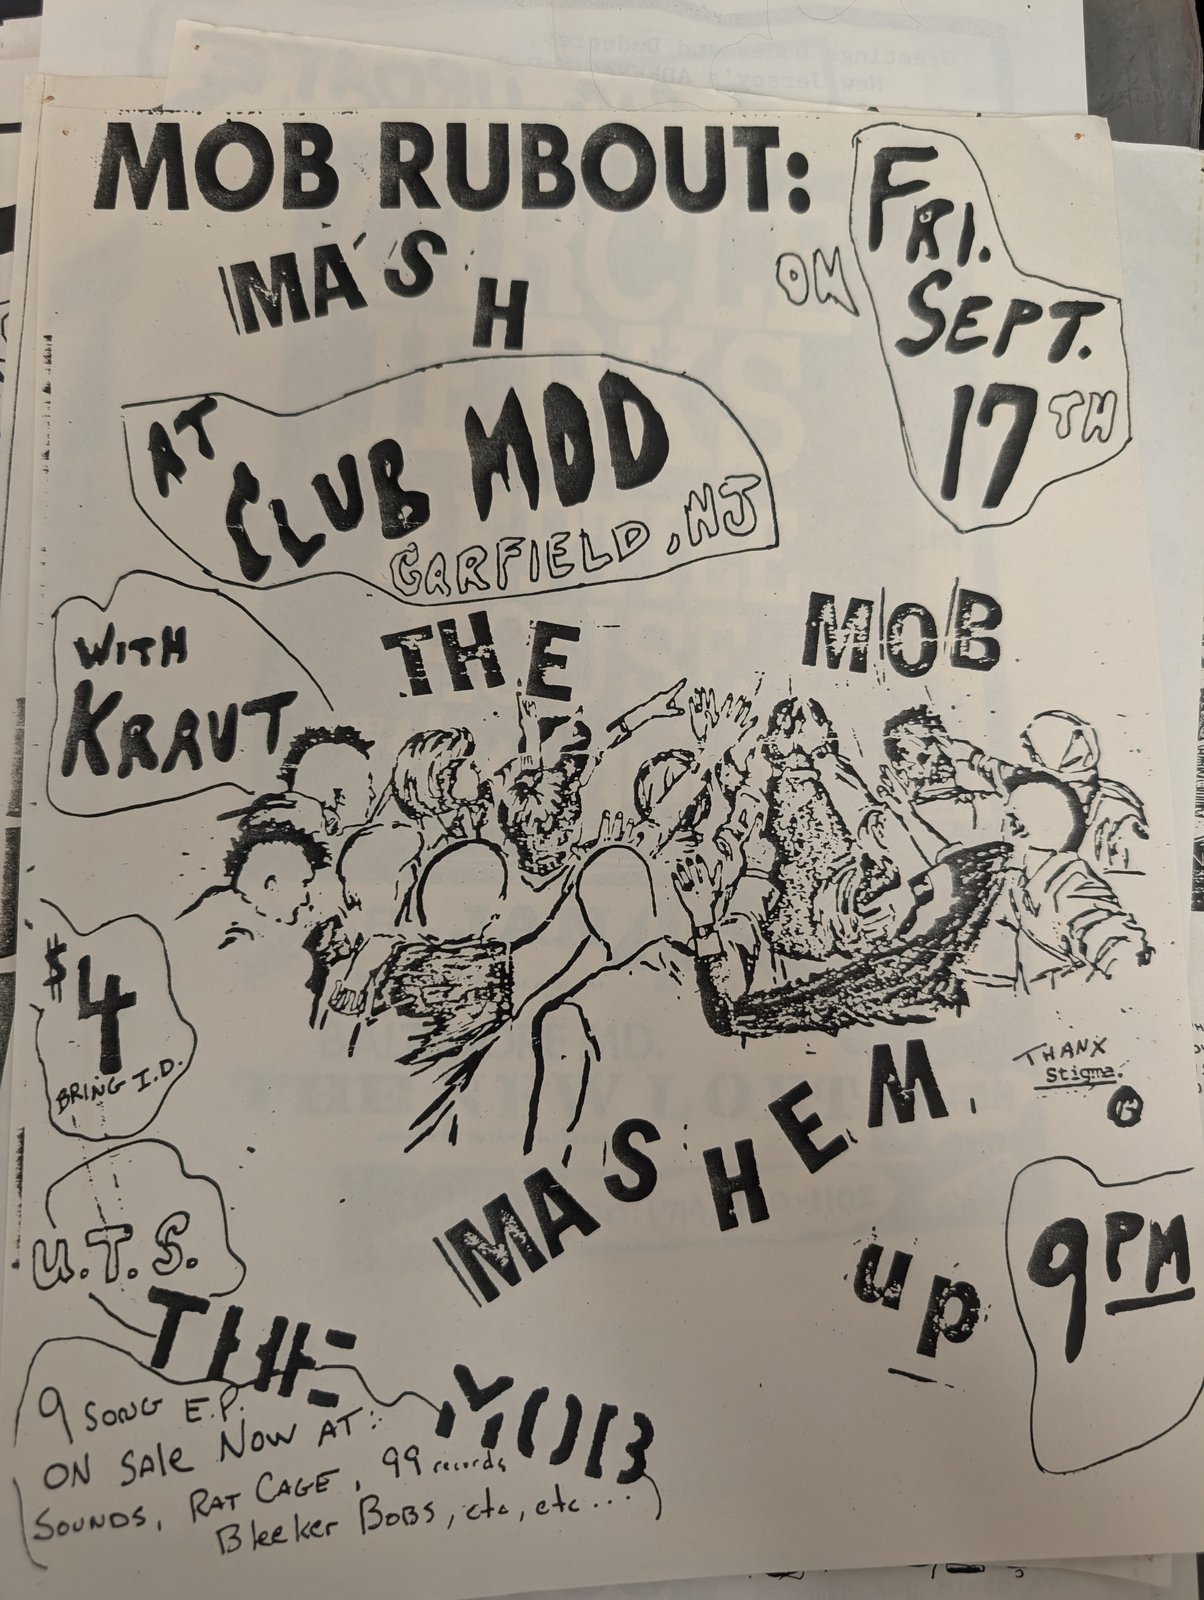 Greetings Dudes and Dudettes,
New Jersey's
MOB RUBOUT:
MASH
ON
FRI.
SEPT.
17TH
AT
CLUB MOD
GARFIELD, NJ
WITH
KRAUT
THE MOB
$4
BRING I.D.
THANX
Stigma.
MASHEM
up
9PM
U.T.S.
THE MOB
9 SONG E.P.
ON SALE NOW AT:
SOUNDS, RAT CAGE, 99 records
Bleeker BOBS, etc, etc...